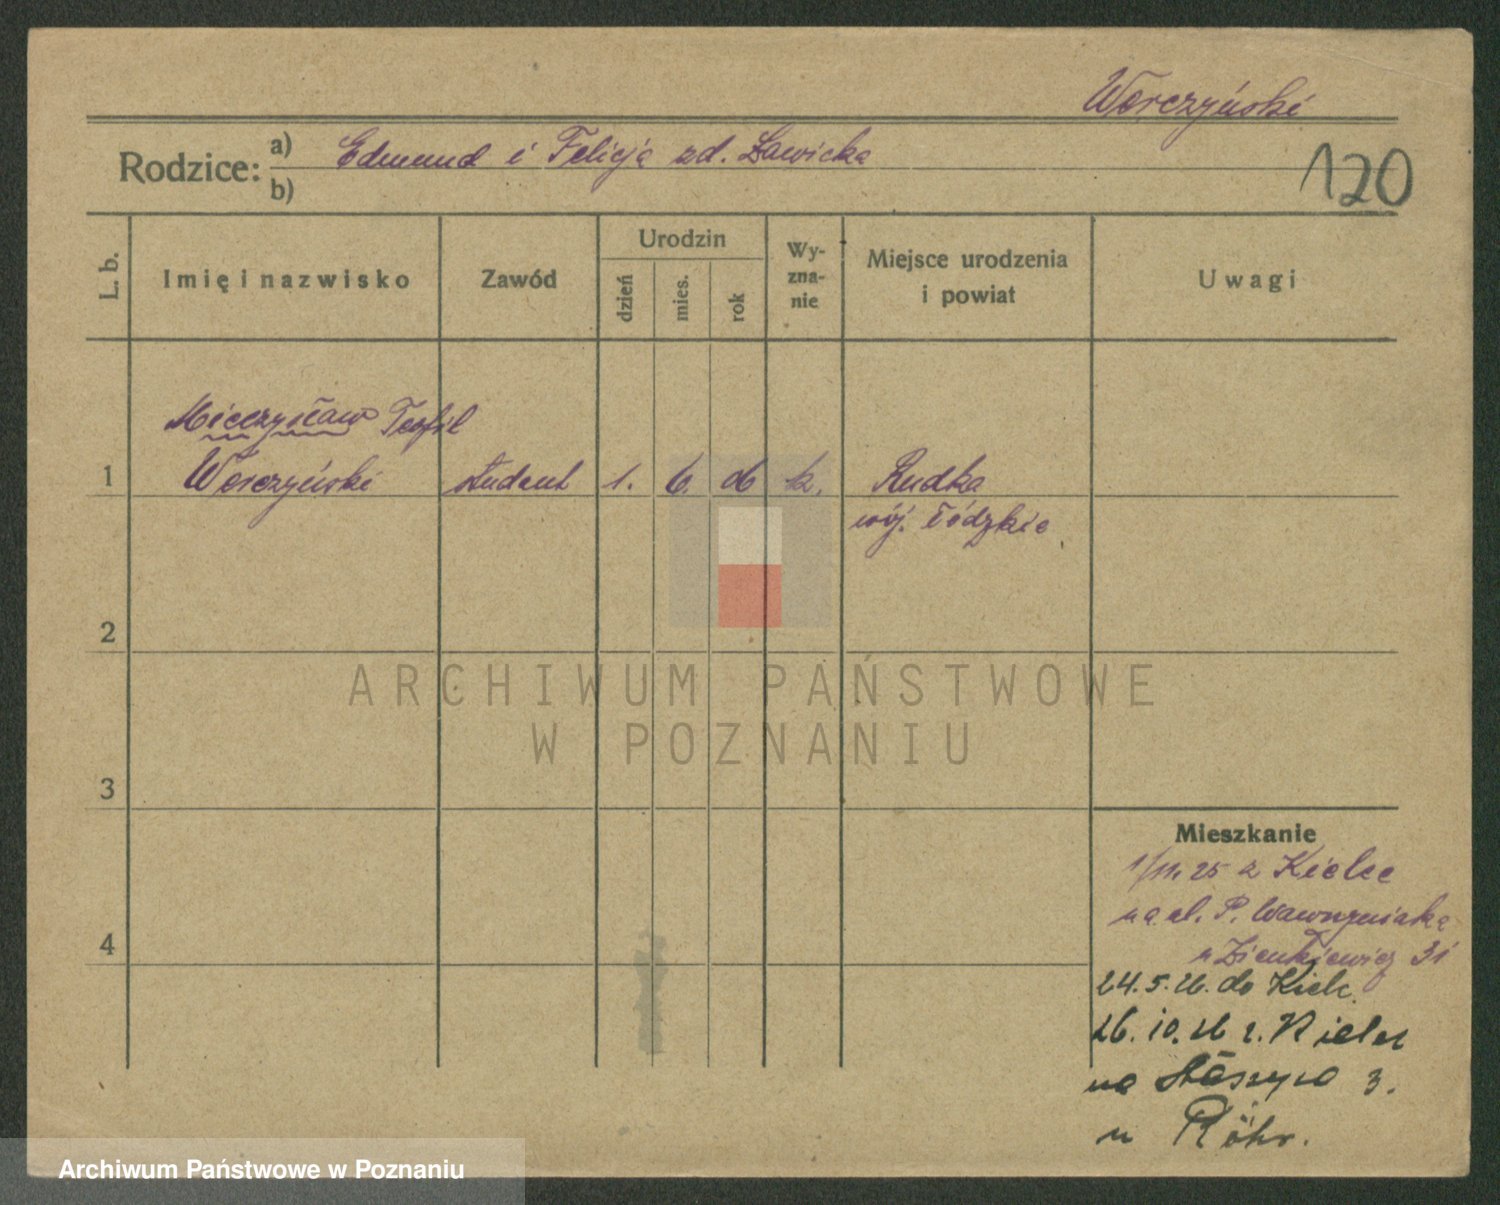 Worczyński
Rodzice: a) Edmund i Felicja zd. Ławicka
b)
120
L. b.
Imię i nazwisko
Zawód
Urodzin
dzień
mies.
rok
Wy-
zna-
nie
Miejsce urodzenia
i powiat
Uwagi
Mieczysław Teofil
1 Worczyński student 1. 6. 06 k. Rudka
wój. łódzkie
2
ARCHIWUM PAŃSTWOWE
W POZNANIU
3
Mieszkanie
1/11. 25 z Kielce
na ul. P. Wawrzyniaka
u Zienkiewicz 31
4
24. 5. 26. do Kielc.
26. 10. 26 z. Kielce
na Staszyca 3.
u Röhr.
Archiwum Państwowe w Poznaniu